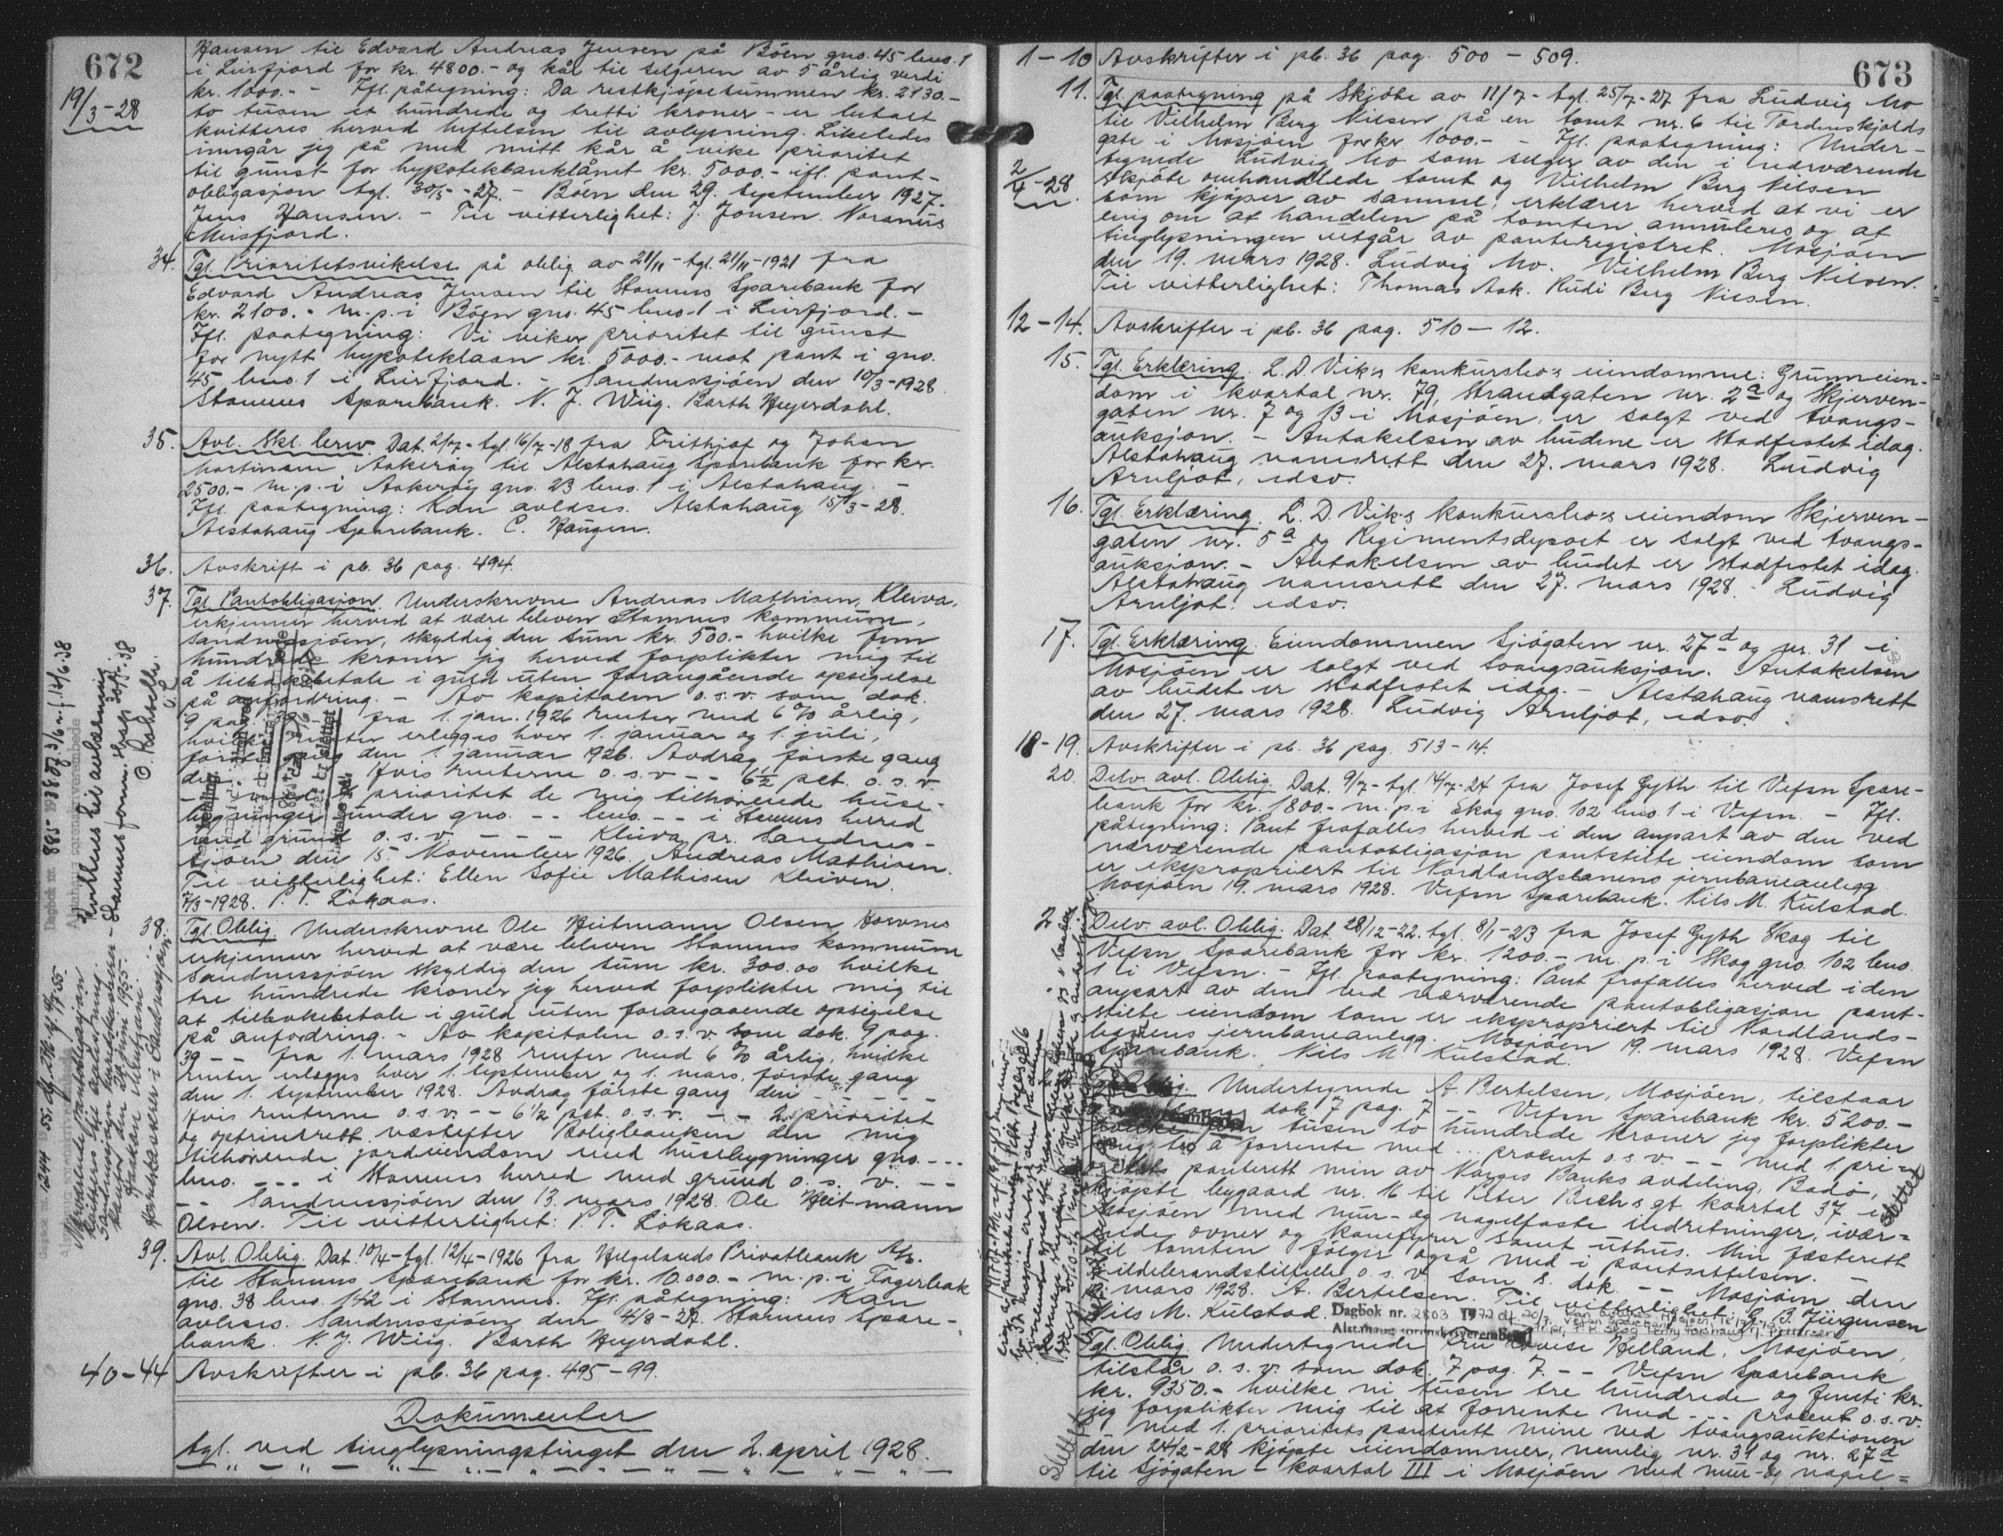 672
19/3-28
Hansen til Edvard Andreas Jensen på Böen gno. 45 bno. 1
i Leirfjord for kr. 4800.- og kår til selgeren av 5 årlig verdi
kr. 1000.- - Ifl. påtegning: Da restkjøpesummen kr. 2130.-
to tusen et hundrede og tretti kroner - er betalt
kvitteres herved heftelsen til avlysning. Likeledes
inngår jeg på med mitt kår å vike prioritet
til gunst for hypotekbanklånet kr. 5000.- ifl. pant-
obligasjon tgl. 30/5 -27. - Böen den 29. september 1927.
Jens Hansen. - Til vitterlighet: J. Jonsen. Noranus
Meisfjord.
34. Tgl. Prioritetsvikelse på oblig. av 21/11 - tgl. 21/11 - 1921 fra
Edvard Andreas Jensen til Stamnes Sparebank for
kr. 2100.- m. p. i Böen gno. 45 bno. 1 i Leirfjord. -
Ifl. paategning: Vi viker prioritet til gunst
for nytt hypoteklaan kr. 5000.- mot pant i gno.
45 bno. 1 i Leirfjord. - Sandnessjöen den 10/3-1928.
Stamnes Sparebank. N. J. Wiig. Barth Heyerdahl.
35. Avl. Skl. brev. Dat. 2/7 - tgl. 16/7-18 fra Frithjof og Johan
Martinsen Aakeröy til Alstahaug Sparebank for kr.
2500.- m. p. i Aakeröy gno. 23 bno. 1 i Alstahaug. -
Ifl. paategning: Kan avlases. Alstahaug 15/3-28.
Alstahaug Sparebank. C. Haugen.
36. Avskrift i pb. 36 pag. 494.
37. Tgl. Pantobligasjon. Underskrevne Andreas Mathisen, Kleiva,
erkjenner herved at være bleven Stamnes kommune,
Sandnessjöen, skyldig den sum kr. 500.- hvilke fem
hundrede kroner jeg herved forplikter mig til
å tilbakebetale i guld uten forangående opsigelse
på anfordring. - Av kapitalen o. s. v. som dok.
9 pag. 39 fra 1. jan. 1926 renter med 6 % årlig,
hvilke renter erlegges hver 1. januar og 1. juli,
första gang den 1. januar 1926. Avdrag förste gang
den Hvis renterne o. s. v. - - 6½ pct. o. s. v.
prioritet de mig tilhörende huse-
bygninger under gno. - - bno. - - i Stamnes herred
med grund o. s. v. - - - Kleiva pr. Sandnes-
sjöen den 15. November 1926. Andreas Mathisen.
Til vitterlighet: Ellen Sofie Mathisen Kleiven.
7/3-1928. P. T. Lökaas.
38. Tgl. Oblig. Underskrevne Ole Heitmann Olsen
erkjenner herved at være bleven Stamnes kommune
Sandnessjöen skyldig den sum kr. 300.00 hvilke
tre hundrede kroner jeg herved forplikter mig til
at tilbakebetale i guld uten forangaaende opsigelse
på anfordring. - Av kapitalen o. s. v. som dok. 9 pag.
39 - - fra 1. mars 1928 renter med 6 % årlig, hvilke
renter erlegges hver 1. september og 1. mars, förste gang
den 1. september 1928. Avdrag förste gang den - - -
Hvis renterne o. s. v. - - 6½ pct. o. s. v. - - 2. prioritet
og optrinsrett næstefter Boligbanken den mig
tilhörende jordeiendom med husebygninger gno. - - -
bno. - - - i Stamnes herred med grund o. s. v. - -
- - Sandnessjöen den 13. mars 1928. Ole Heitmann
Olsen. Til vitterlighet: P. T. Lökaas.
39. Avl. Oblig. Dat. 10/4 - tgl. 12/4 - 1926 fra Helgelands Privatbank A/s.
til Stamnes Sparebank for kr. 10.000.- m. p. i Fagerbak
gno. 38 bno. 142 i Stamnes. Ifl. påtegning: Kan
avlesis. Sandnessjöen den 4/8 - 27. Stamnes Spare-
bank. N. J. Wiig. Barth Heyerdahl.
40-44 Avskrifter i pb. 36 pag. 495-99.
Dokumenter
tgl. ved tinglysningstinget den 2. april 1928.
673
1-10 Avskrifter i pb. 36 pag. 500 - 509.
11. Tgl. paategning på Skjöte av 11/7 - tgl. 25/7-27 fra Ludvig Mo
til Vilhelm Berg Nilsen på en tomt nr. 6 til Tordenskjolds
gate i Mosjöen for kr. 1000.- - Ifl. paategning: Under-
2/4-28 tegnede Ludvig Mo som selger av den i nærværende
skjöte omhandlede tomt og Vilhelm Berg Nilsen
som kjöper av samme, erklærer herved at vi er
enig om at handelen på tomten annuleres og at
tinglysningen utgår av panteregistret. Mosjöen
den 19. mars 1928. Ludvig Mo. Vilhelm Berg Nilsen.
Til vitterlighet: Thomas Aak. Rudi Berg Nilsen.
12-14. Avskrifter i pb. 36 pag. 510 - 12.
15. Tgl. Erklæring. L. D. Vik's konkursbo's eiendomme: Grunneien-
dom i kvartal nr. 79, Strandgaten nr. 2a og Skjerven-
gaten nr. 7 og 13 i Mosjöen, er solgt ved tvangs-
auksjon. - Antakelsen av budene er stadfestet idag.
Alstahaug namsrett den 27. mars 1928. Ludvig
Arnljot, edsv.
16. Tgl. Erklæring. L. D. Vik's konkursbo's eiendom Skjerven-
gaten nr. 5a og Regimentsdepoet er solgt ved tvangs-
auksjon. - Antakelsen av budet er stadfestet idag.
Alstahaug namsrett den 27. mars 1928. - Ludvig
Arnljot. edsv.
17. Tgl. Erklæring. Eiendommen Sjögaten nr. 27d og nr. 31 i
Mosjöen er solgt ved tvangsauksjon. Antakelsen
av budet er stadfestet idag. - Alstahaug namsrett
den 27. mars 1928. Ludvig Arnljot, edsv.
18-19. Avskrifter i pb. 36 pag. 513-14.
20. Delv. avl. Oblig. Dat. 9/7 - tgl. 14/7-24 fra Josef Gyth til Vefsn Spare-
bank for kr. 1800.- m. p. i Skog gno. 102 bno. 1 i Vefsn. - Ifl.
påtegning: Pant frafalles herved i den anpart av den ved
nærværende pantobligasjon pantstilte eiendom som
er ekspropriert til Nordlandsbanens jernbaneanlegg.
Mosjöen 19. mars 1928. Vefsn Sparebank. Nils M. Kulstad.
2 Delv. avl. Oblig. Dat. 28/12-22. tgl. 8/1-23 fra Josef Gyth Skog til
Vefsn Sparebank for kr. 1200.- m. p. i Skog gno. 102 bno.
1 i Vefsn. - Ifl. paategning: Pant frafalles herved i den
anpart av den ved nærværende pantobligasjon pant-
stilte eiendom som er ekspropriert til Nordlands-
banens jernbaneanlegg. Mosjöen 19. mars 1928. Vefsn
Sparebank. Nils M. Kulstad.
Tgl. Oblig. Undertegnede A. Bertelsen, Mosjöen, tilstaar
dok 7 pag. 7 - - Vefsn Sparebank kr. 5200.-
hvilke fem tusen to hundrede kroner jeg forplikter
mig til å forrente med ... procent o. s. v. - - med 1. pri-
oritets panterett min av Norges Banks avdeling, Bodö,
kjöpte bygaard nr. 16 til Peter Bechs gt. kvartal 37 i
Mosjöen med mur- og nagelfaste indretninger, ivær-
ende ovner og komfyrer samt uthus. Min fæsterett
til tomten fölger også med i pantsettelsen. -
Ildebrandstilfelle o. s. v. som s. dok - - Mosjöen den
mars 1928. A. Bertelsen. Til vitterlighet: E. B. Jürgensen
Nils M. Kulstad. Dagbok nr. 2803 1972
Alstahaug sorenskriverembede
Tgl. Oblig. Undertegnede Fru Lovise Helland, Mosjöen,
tilstår o. s. v. som dok. 7 pag. 7. - - Vefsn Sparebank
kr. 9350.- hvilke ni tusen tre hundrede og femti kr.
jeg forplikter mig til at forrente med - - procent o. s. v.
med 1. prioritets panterett mine ved tvangsauktionen
den 24/2-28 kjöpte eiendommer, nemlig nr. 31 og nr. 27d
til Sjögaten - kvartal III i Mosjöen med mur- og nagel=
Slettet
Slettet